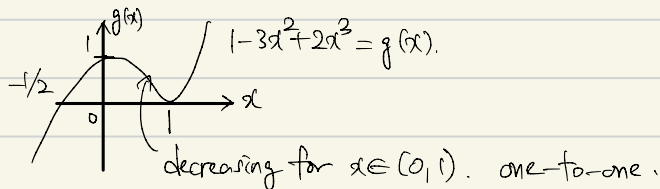 g(x)
1
1-3x²+2x³ = g(x).
-1/2
x
0
1
decreasing for x∈(0,1). one-to-one.